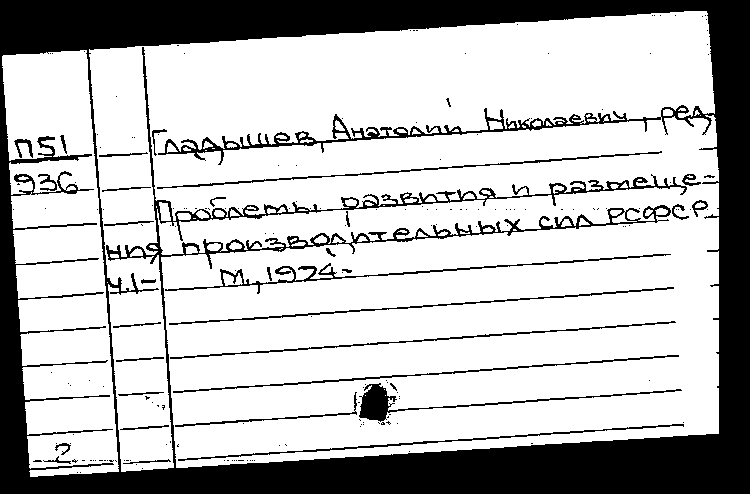 Гладышев, Анатолий Николаевич, ред.
П51
936
Проблемы развития и размеще-
ния производительных сил РСФСР.
Ч.1- М., 1974-
2